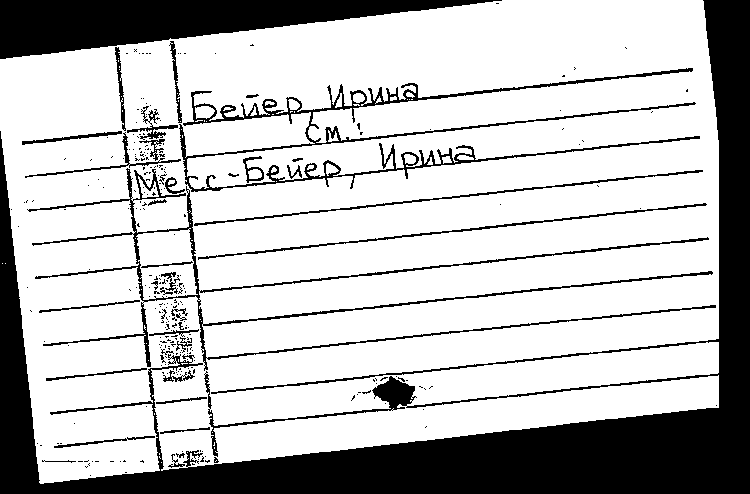 Бейер, Ирина
См.:
Месс-Бейер, Ирина